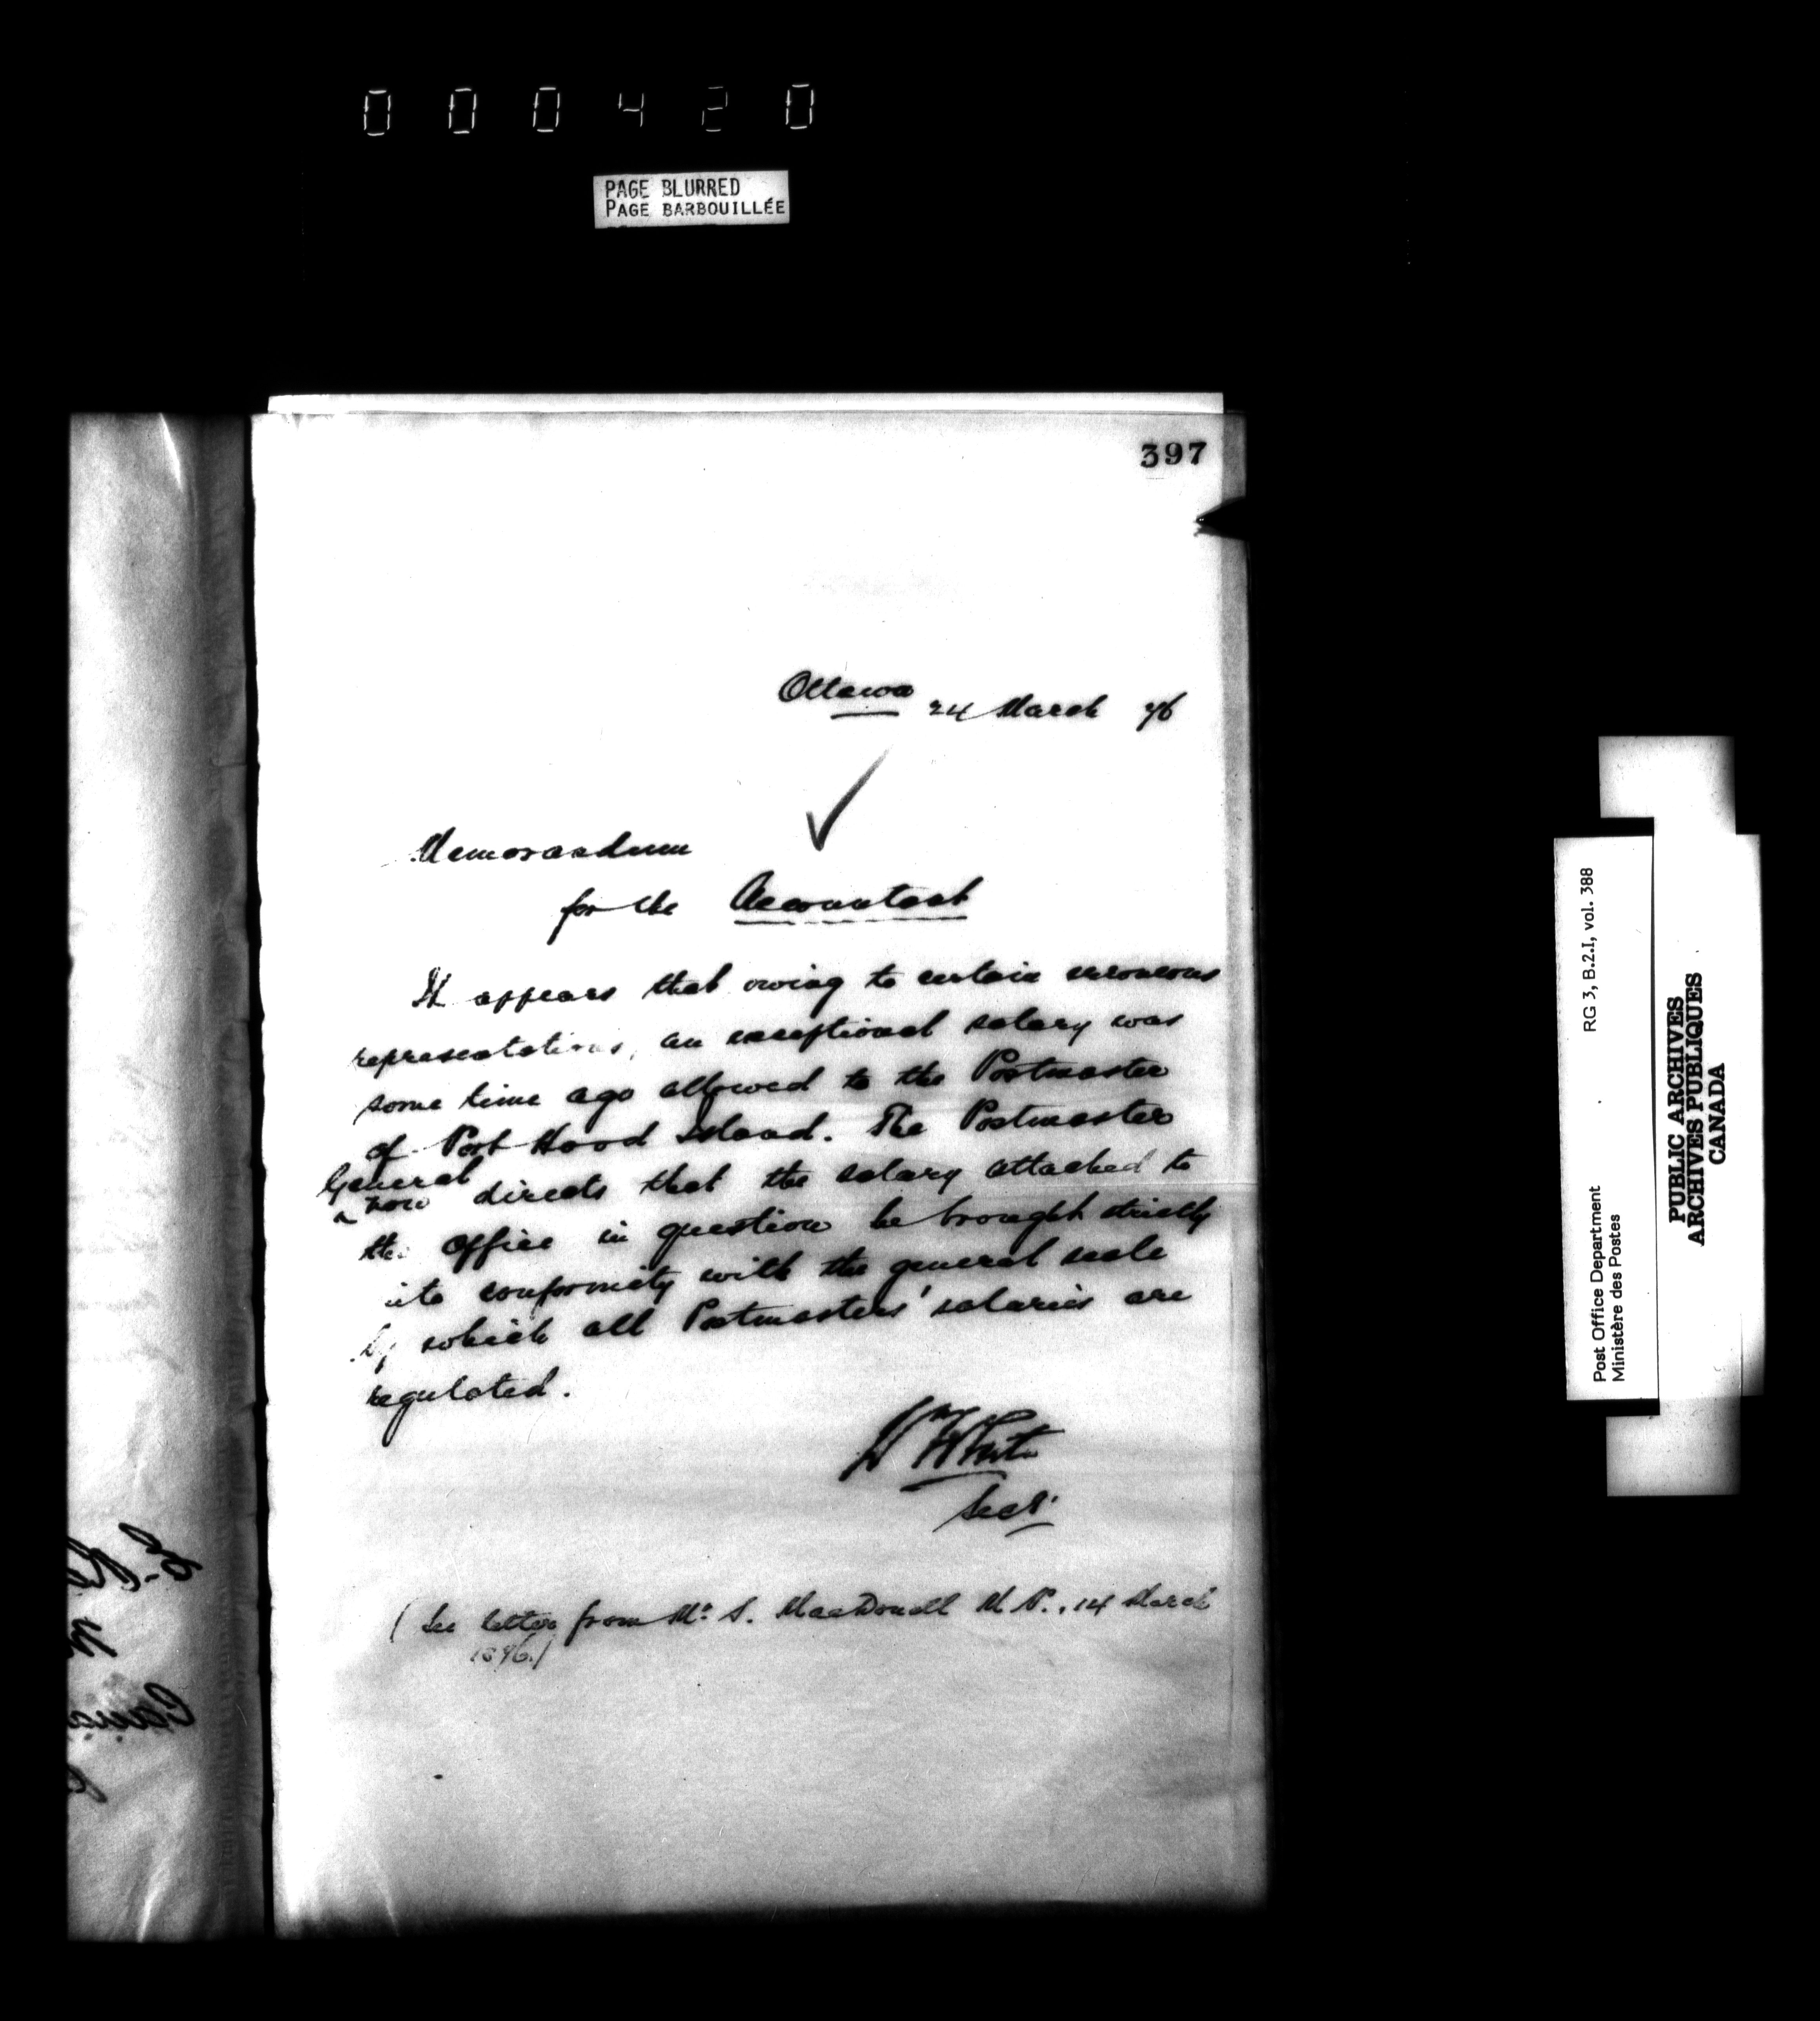 000420
PAGE BLURRED
PAGE BARBOUILLÉE
397
Ottawa 24 March 96
Memorandum
for the Accountant
It appears that owing to certain erroneous
representations, an exceptional salary was
some time ago allowed to the Postmaster
of Port Hood Island. The Postmaster
General now directs that the salary attached to
the Office in question be brought strictly
into conformity with the general scale
by which all Postmasters' salaries are
regulated.
Wm White
Secy.
(See letter from Mr. S. MacDonell M.P., 14 March
1896.)
Post Office Department RG 3, B.2.I, vol. 388
Ministère des Postes
PUBLIC ARCHIVES
ARCHIVES PUBLIQUES
CANADA